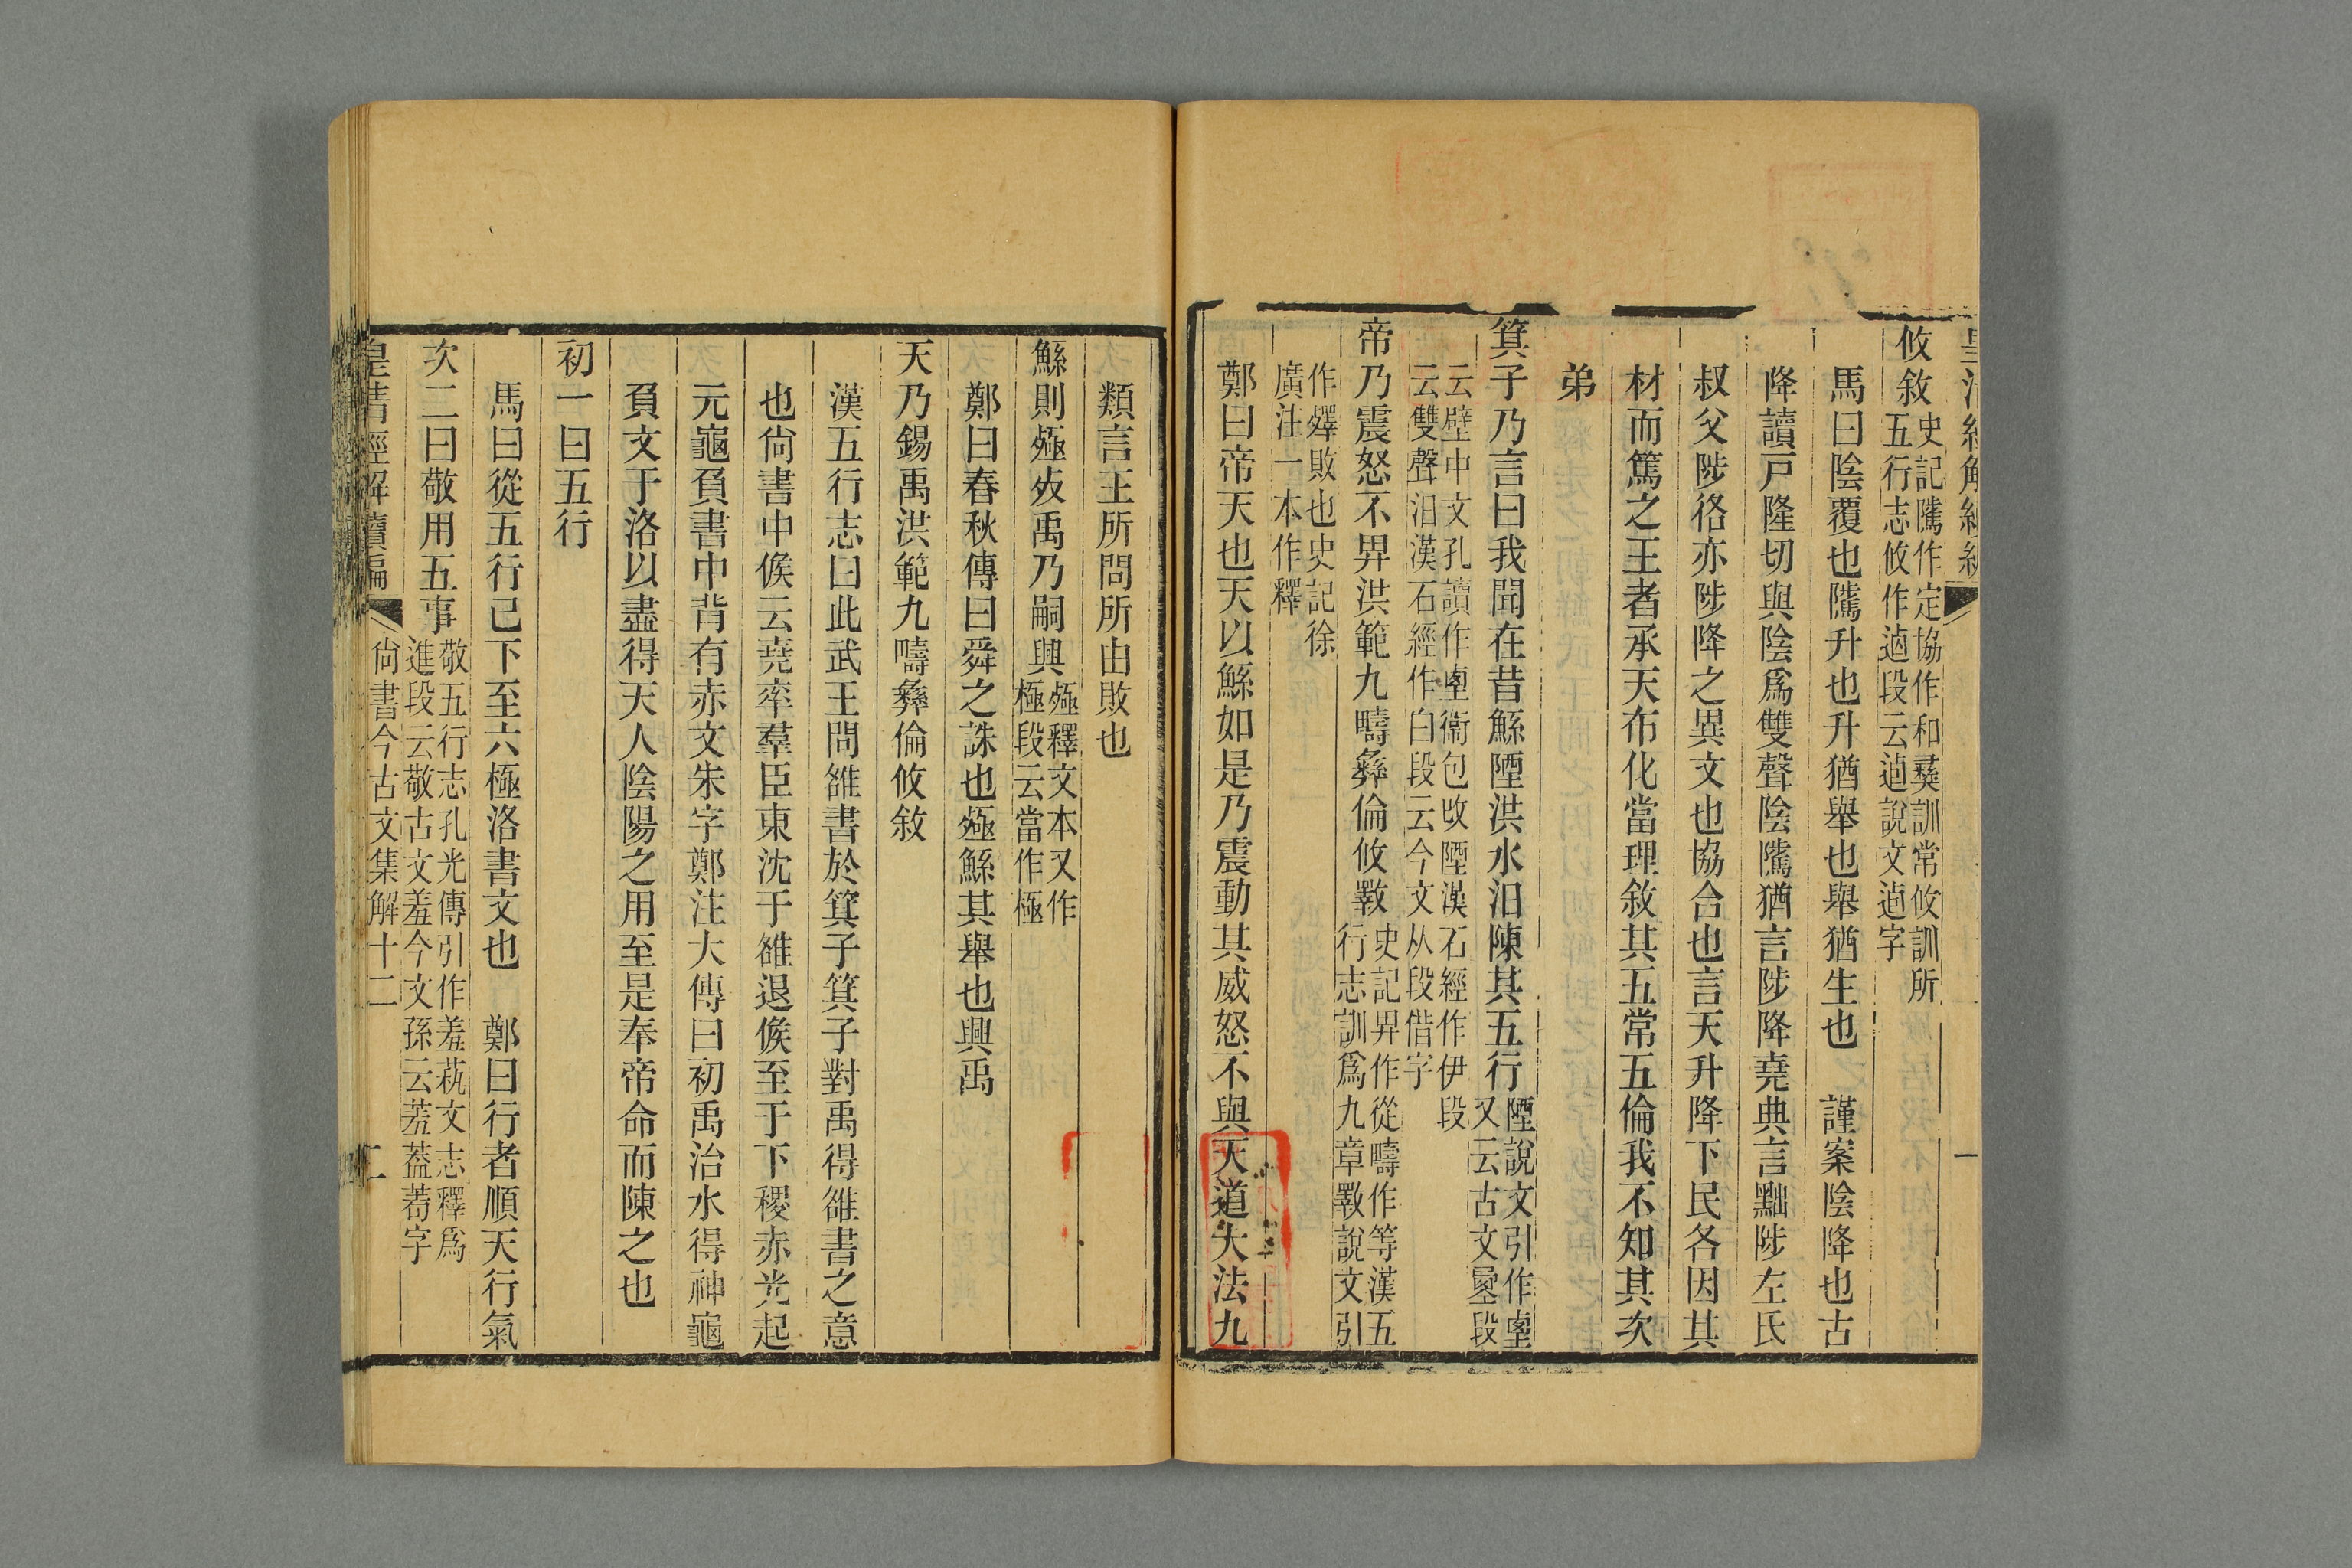 攸敘史記隲作定協作和彞訓常攸訓所
五行志攸作逌段云逌說文逌字
馬曰陰覆也隲升也升猶舉也舉猶生也　謹案陰降也古
降讀戸隆切與陰爲雙聲陰隲猶言陟降堯典言黜陟左氏
叔父陟恪亦陟降之異文也協合也言天升降下民各因其
材而篤之王者承天布化當理敘其五常五倫我不知其次
弟
箕子乃言曰我聞在昔鯀陻洪水汨陳其五行陻說文引作垔
又云古文𡎱段
云壁中文孔讀作垔衞包改陻漢石經作伊段
云雙聲汨漢石經作曰段云今文从段借字
帝乃震怒不畀洪範九疇彝倫攸斁史記畀作從疇作等漢五
行志訓爲九章斁說文引
作殬敗也史記徐
廣注一本作釋
鄭曰帝天也天以鯀如是乃震動其威怒不與天道大法九
類言王所問所由敗也
鯀則殛歺禹乃嗣興殛釋文本又作
極段云當作極
鄭曰春秋傳曰舜之誅也殛鯀其舉也興禹
天乃錫禹洪範九疇彝倫攸敘
漢五行志曰此武王問雒書於箕子箕子對禹得雒書之意
也尙書中候云堯率羣臣東沈于雒退候至于下稷赤光起
元龜負書中背有赤文朱字鄭注大傳曰初禹治水得神龜
負文于洛以盡得天人陰陽之用至是奉帝命而陳之也
初一曰五行
馬曰從五行已下至六極洛書文也　鄭曰行者順天行氣
次二曰敬用五事敬五行志孔光傳引作羞蓺文志釋爲
進段云敬古文羞今文孫云羞葢茍字
皇清經解續編　尙書今古文集解十二　二